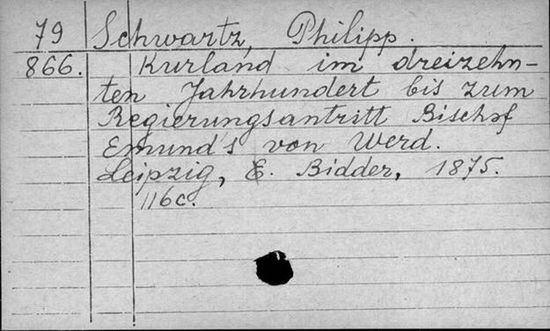 79 Schwartz, Philipp.
866. Kurland im dreizehn-
ten Jahrhundert bis zum
Regierungsantritt Bischof
Emund's von Werd.
Leipzig, E. Bidder, 1875.
116c.